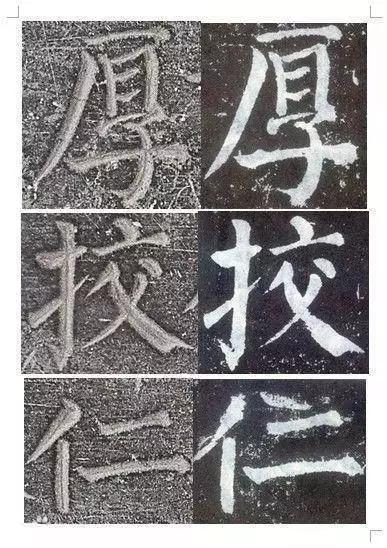 厚厚
挍挍
仁仁